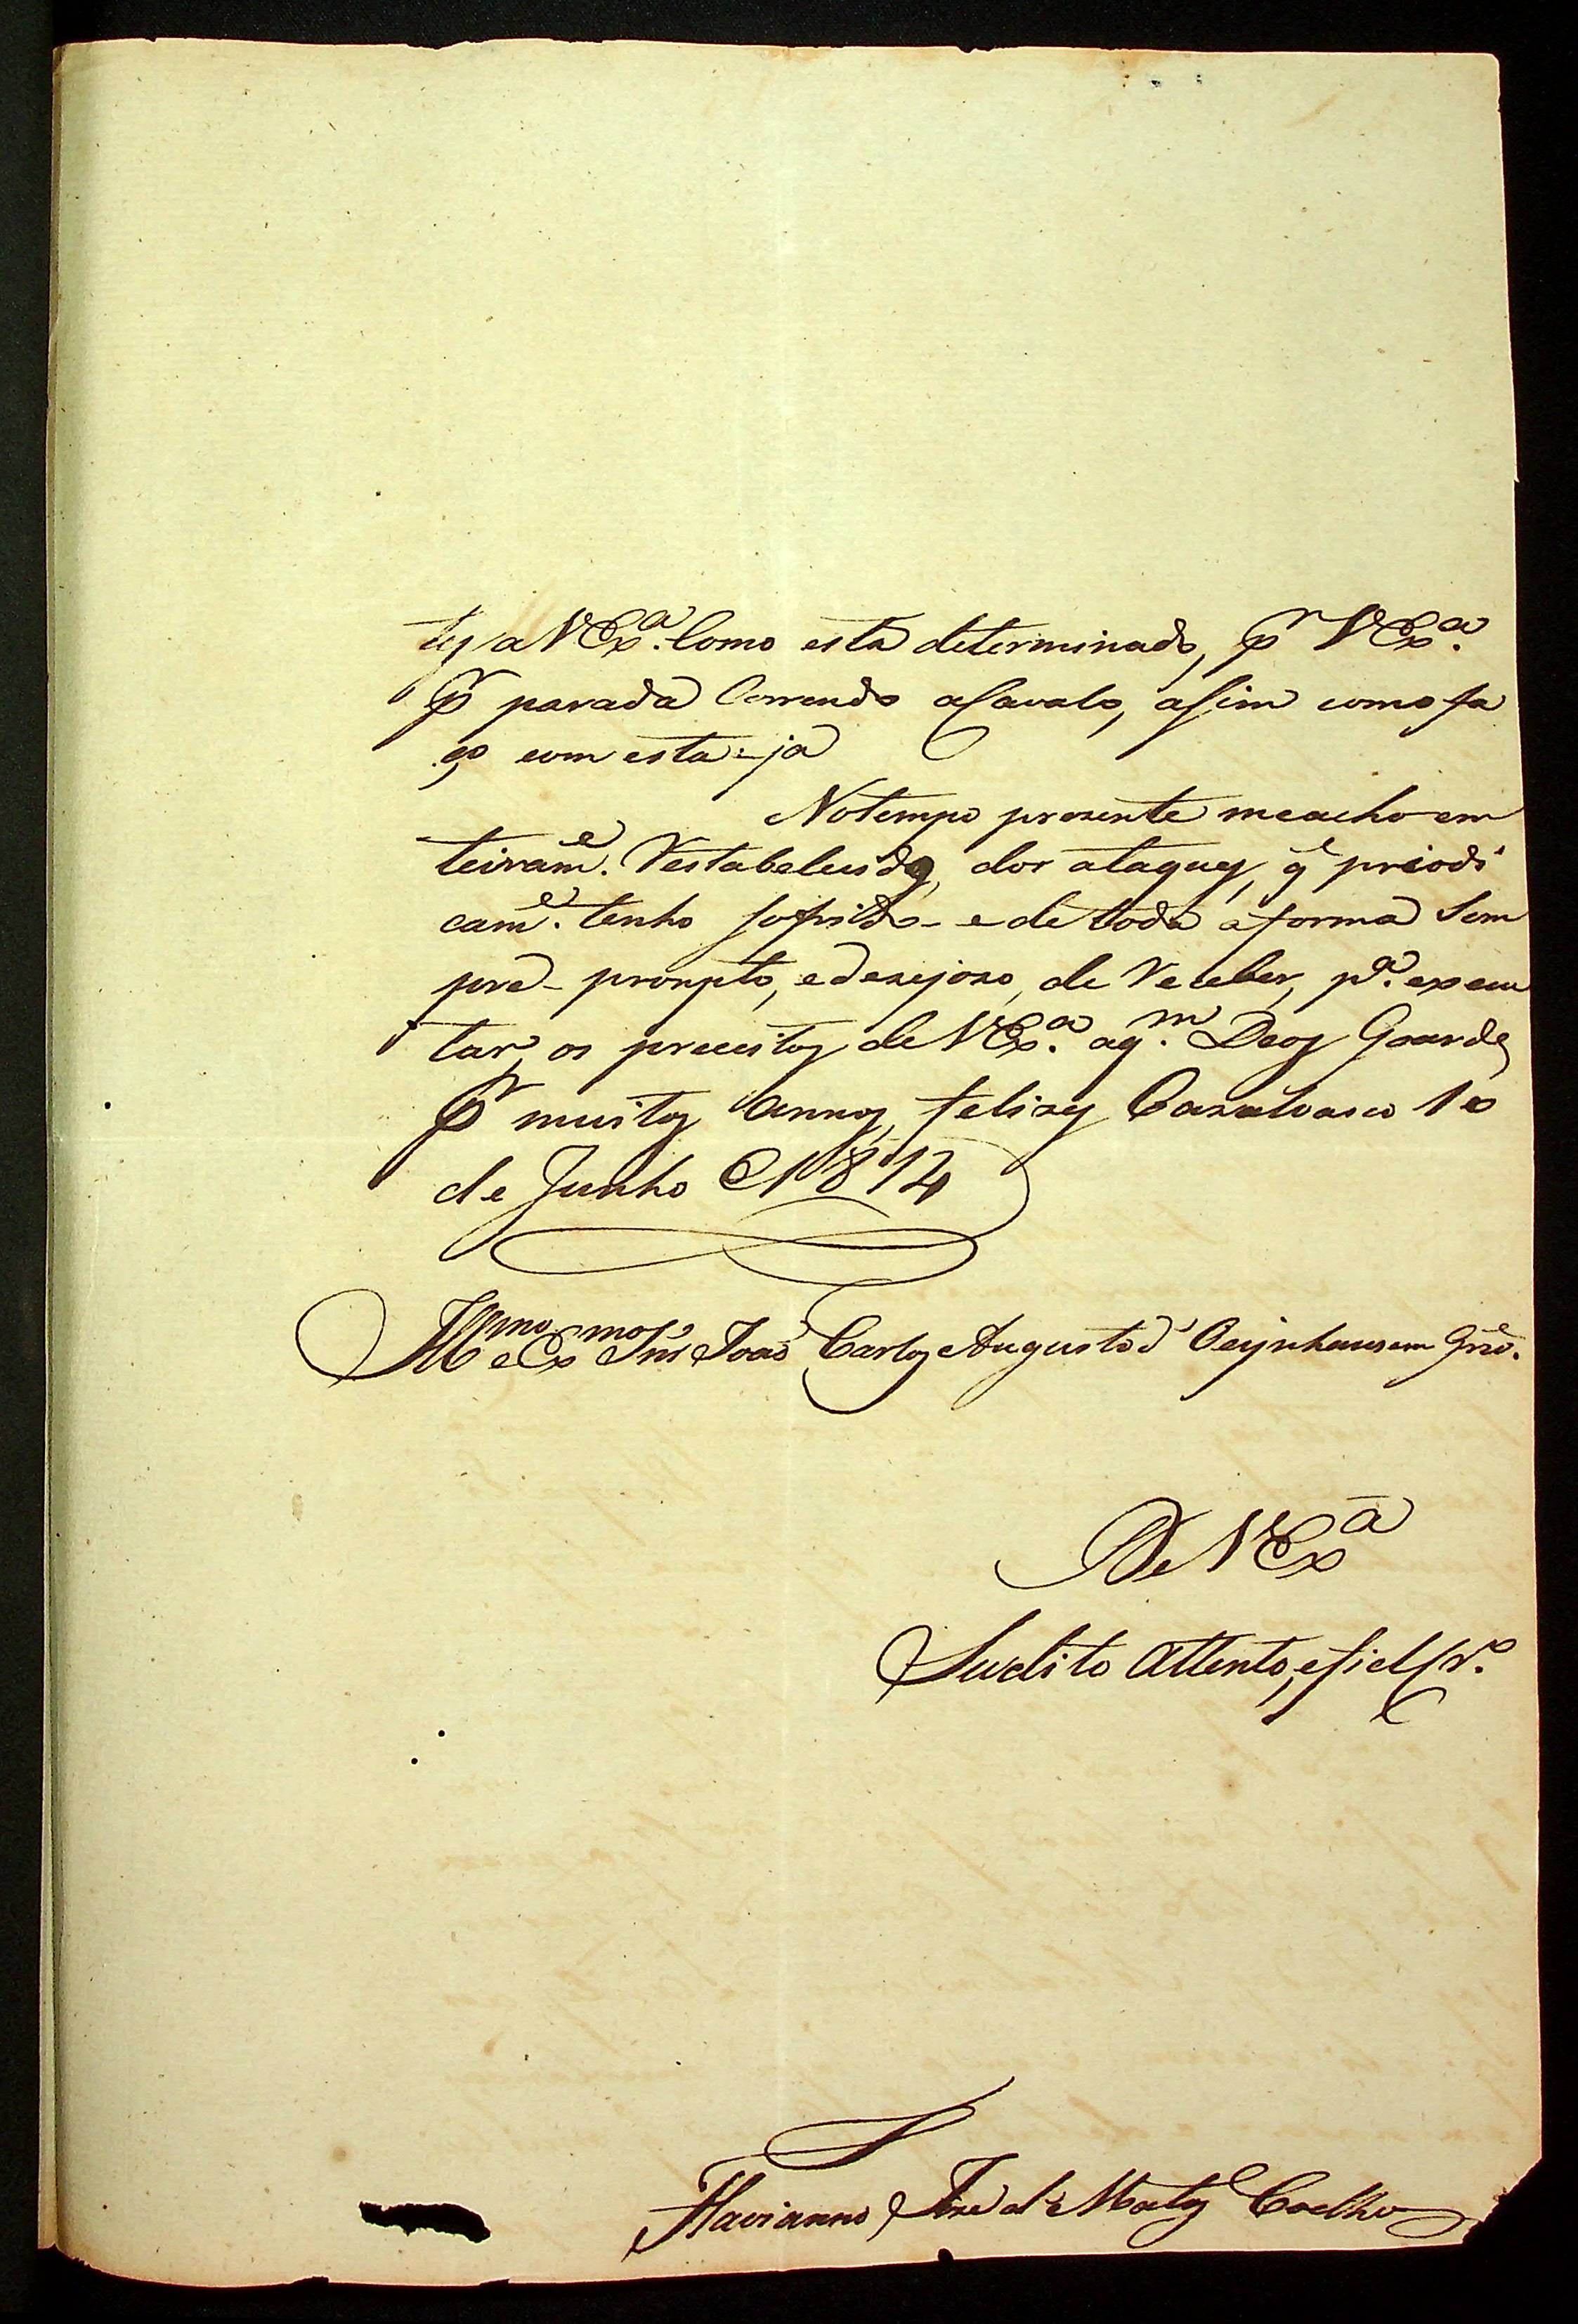 tes a VEx.ª Como está determinado, pr VEx.ª
pr parada Correndo acavalo, asim como fa
ço com esta já
No tempo prezente meacho em
teiram.e Restabelecido, dos ataques, q̃ priodi
cam.e tenho sofrido e de toda aforma Sem
pre prompto, e dezejozo, de Receber, p.ª exzecu
tar, os preceitos de VEx.ª aq.m Deos Guarde
pr muitos Annos felizes Cazalvasco 10
de Junho 1814
Illmo e Exmo Snr João Carlos Augusto d' Oeynhausem
De VExª
Sudito Attento, efiel
Flavianno Joze de Mattos Coelho